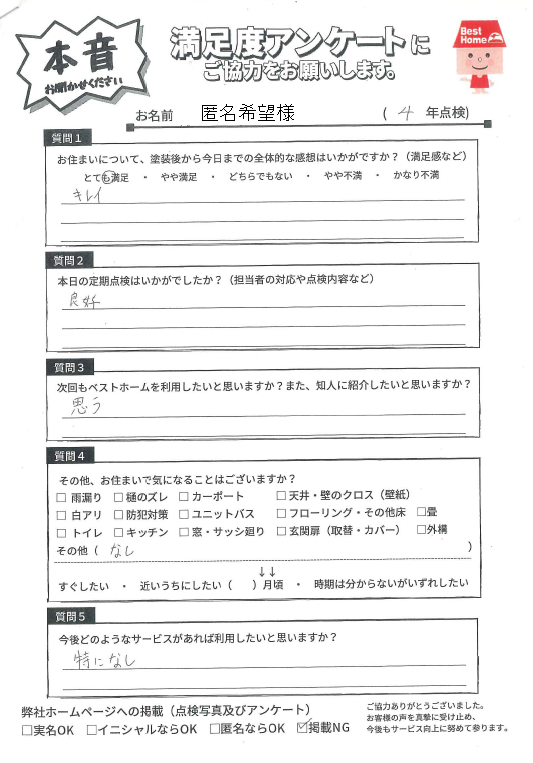 本音
お聞かせください
満足度アンケートに
ご協力をお願いします。
Best
Home
お名前 匿名希望様 ( 4 年点検)
質問1
お住まいについて、塗装後から今日までの全体的な感想はいかがですか?(満足感など)
とても満足 ・ やや満足 ・ どちらでもない ・ やや不満 ・ かなり不満
キレイ
質問2
本日の定期点検はいかがでしたか?(担当者の対応や点検内容など)
良好
質問3
次回もベストホームを利用したいと思いますか?また、知人に紹介したいと思いますか?
思う
質問4
その他、お住まいで気になることはございますか?
□ 雨漏り □ 樋のズレ □ カーポート □ 天井・壁のクロス(壁紙)
□ 白アリ □ 防犯対策 □ ユニットバス □ フローリング・その他床 □畳
□ トイレ □ キッチン □ 窓・サッシ廻り □ 玄関扉(取替・カバー) □外構
その他( なし )
↓↓
すぐしたい ・ 近いうちにしたい( )月頃 ・ 時期は分からないがいずれしたい
質問5
今後どのようなサービスがあれば利用したいと思いますか?
特になし
弊社ホームページへの掲載(点検写真及びアンケート)
□実名OK □イニシャルならOK □匿名ならOK ☑掲載NG
ご協力ありがとうございました。
お客様の声を真摯に受け止め、
今後もサービス向上に努めて参ります。